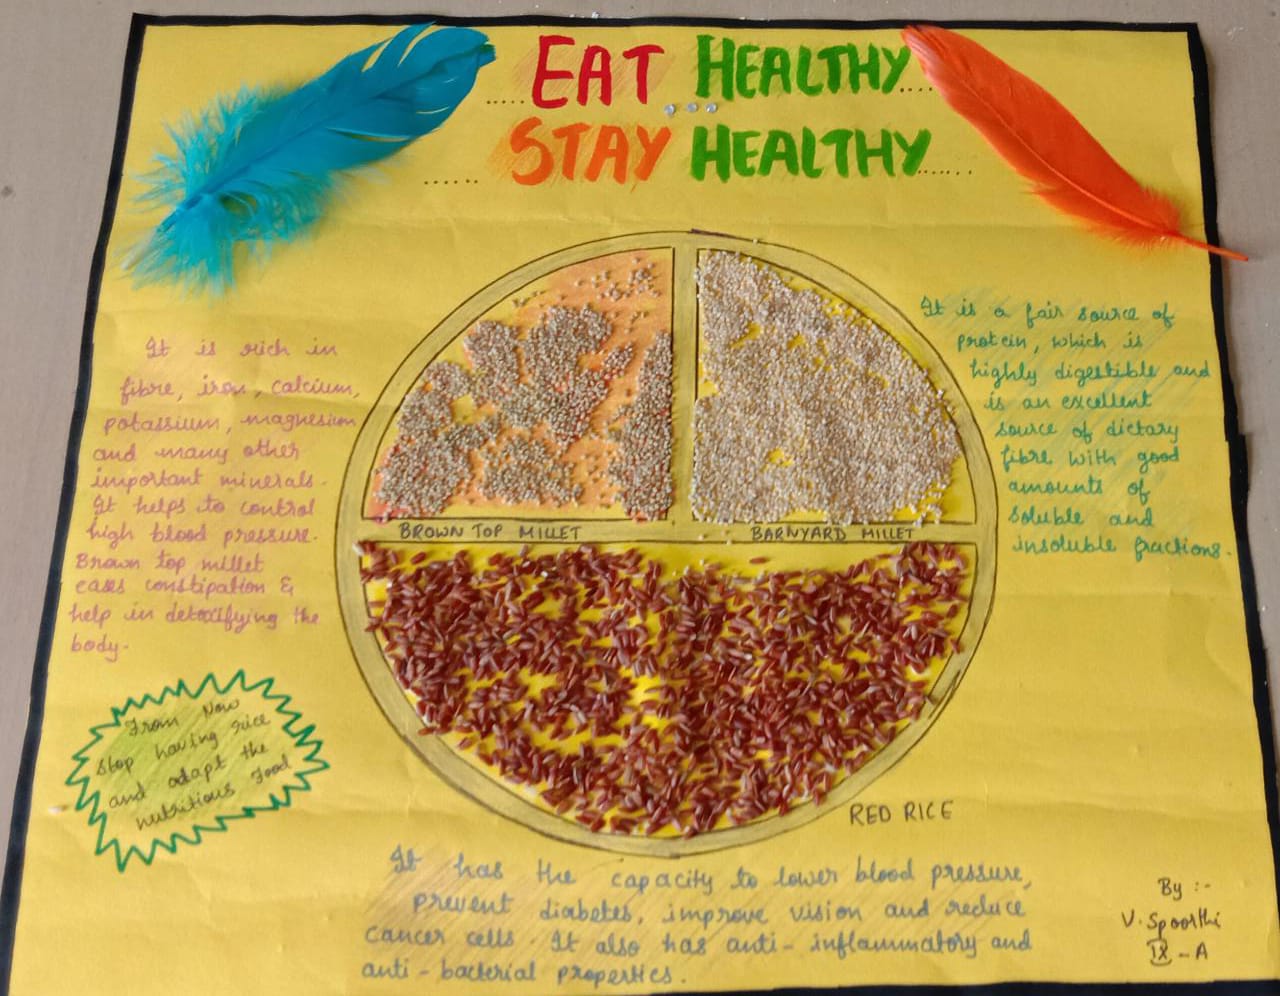 EAT HEALTHY....
..... ...
STAY HEALTHY......
It is rich in
fibre, iron, calcium,
potassium, magnesium
and many other
important minerals.
It helps to control
high blood pressure.
Brown top millet
eases constipation &
help in detoxifying the
body.
It is a fair source of
protein, which is
highly digestible and
is an excellent
source of dietary
fibre with good
amounts of
soluble and
insoluble fractions.
BROWN TOP MILLET
BARNYARD MILLET
RED RICE
From Now
stop having rice
and adapt the
nutritious food
It has the capacity to lower blood pressure,
prevent diabetes, improve vision and reduce
cancer cells. It also has anti-inflammatory and
anti-bacterial properties.
By :-
V. Spoorthi
IX - A